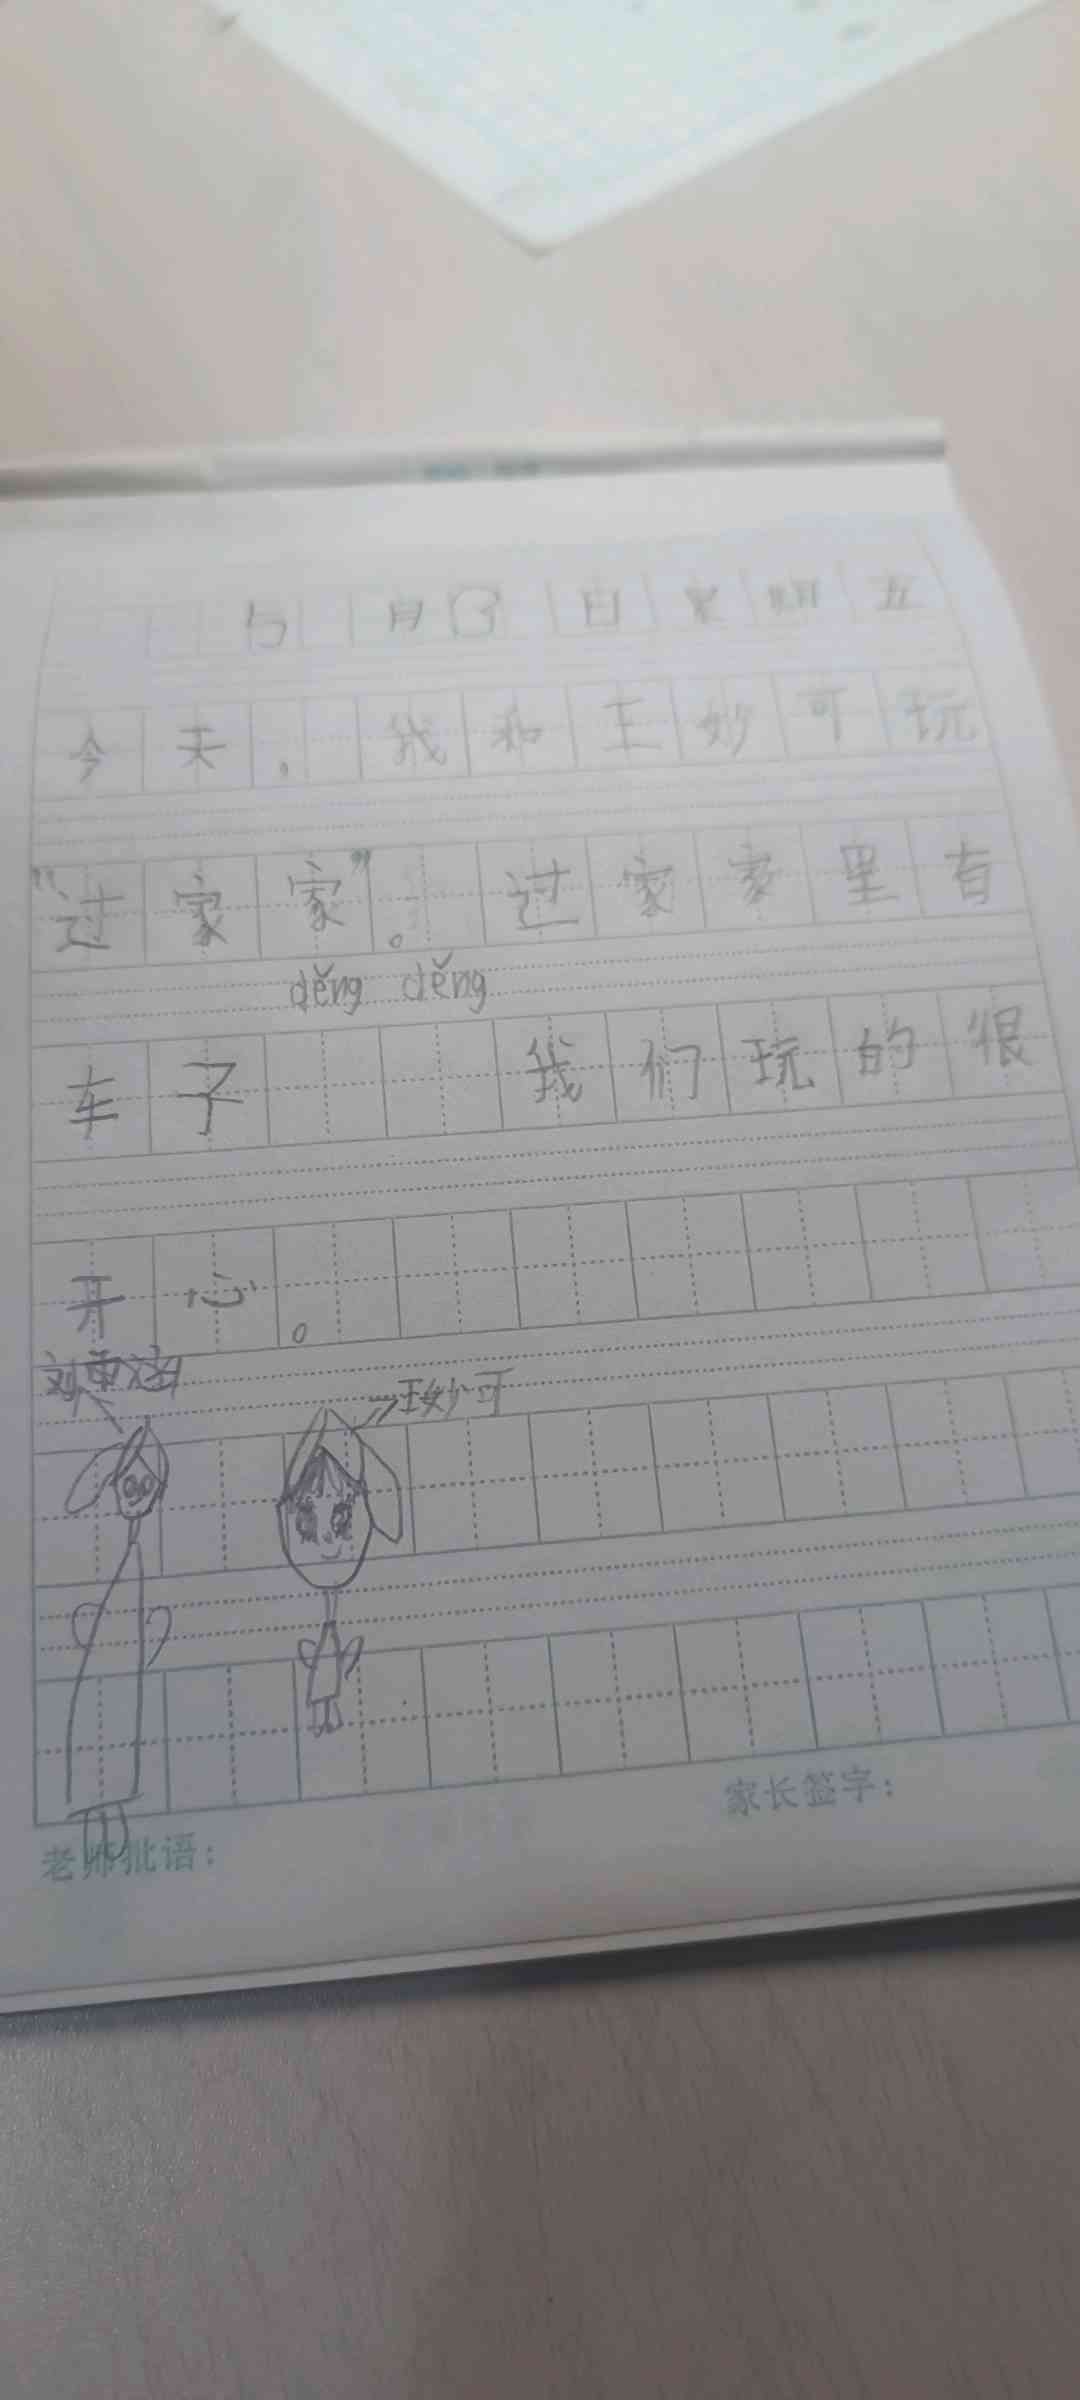 5月 日 星期五
今天，我和王妙可玩
"过家家"。过家家里有
děng děng
车子 我们玩的很
开心。
刘 涵
→王妙可
老师批语：
家长签字：